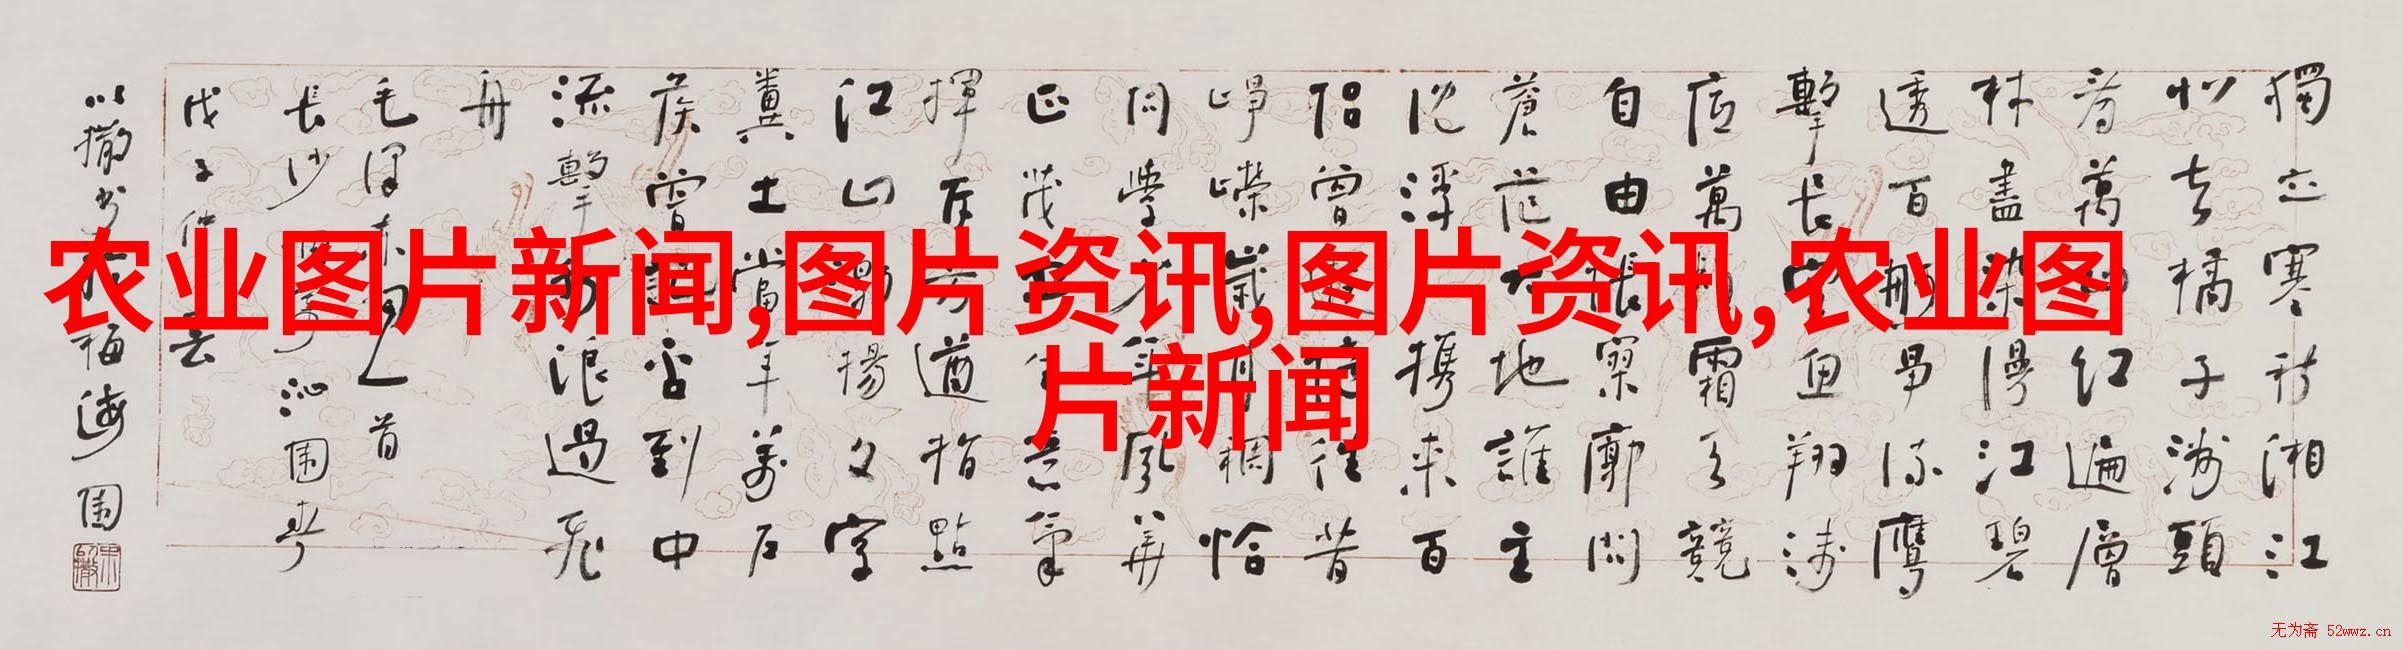 农业图片新闻,图片资讯,图片资讯,农业图
片新闻
獨立寒秋湘江
北去橘子洲頭
看萬山红遍層
林盡染漫江碧
透百舸爭流鷹
擊長空魚翔淺
底萬類霜天競
自由悵寥廓問
蒼茫大地誰主
沈浮携来百
侣曾遊憶往昔
崢嶸歲月稠恰
同學少年風華
正茂書生意氣
揮斥方遒指點
江山激揚文字
糞土當年萬户
侯曾記否到中
流擊水浪遏飛
舟
毛澤東詞一首
長沙 沁園春
戊子仲
梅海園
无为斋 52wwz.cn